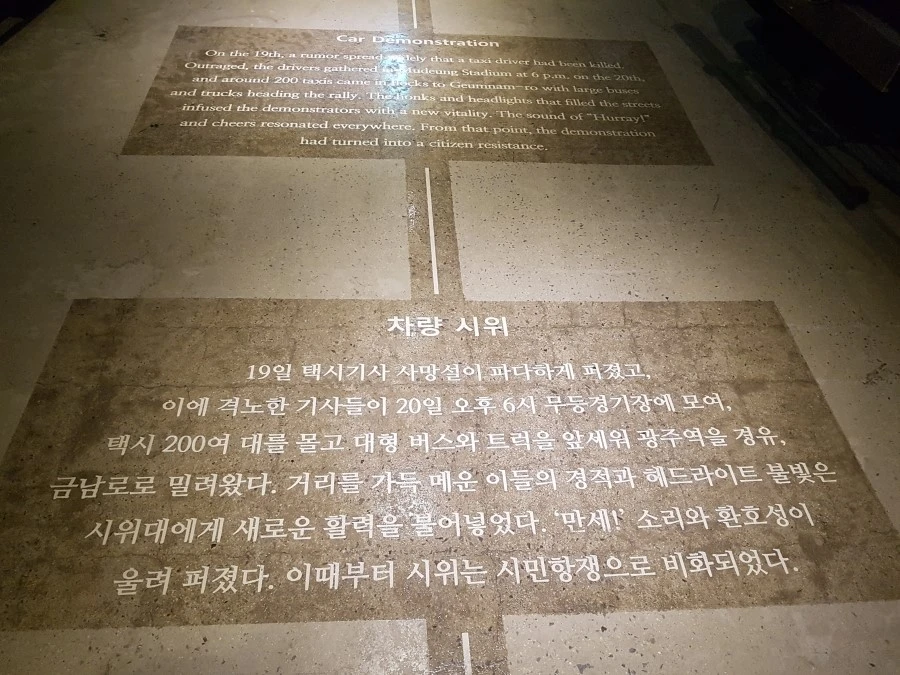 Car Demonstration
On the 19th, a rumor spread widely that a taxi driver had been killed.
Outraged, the drivers gathered at Mudeung Stadium at 6 p.m. on the 20th,
and around 200 taxis came in flocks to Geumnam-ro with large buses
and trucks heading the rally. The honks and headlights that filled the streets
infused the demonstrators with a new vitality. The sound of "Hurray!"
and cheers resonated everywhere. From that point, the demonstration
had turned into a citizen resistance.
차량 시위
19일 택시기사 사망설이 파다하게 퍼졌고,
이에 격노한 기사들이 20일 오후 6시 무등경기장에 모여,
택시 200여 대를 몰고 대형 버스와 트럭을 앞세워 광주역을 경유,
금남로로 밀려왔다. 거리를 가득 메운 이들의 경적과 헤드라이트 불빛은
시위대에게 새로운 활력을 불어넣었다. '만세!' 소리와 환호성이
울려 퍼졌다. 이때부터 시위는 시민항쟁으로 비화되었다.